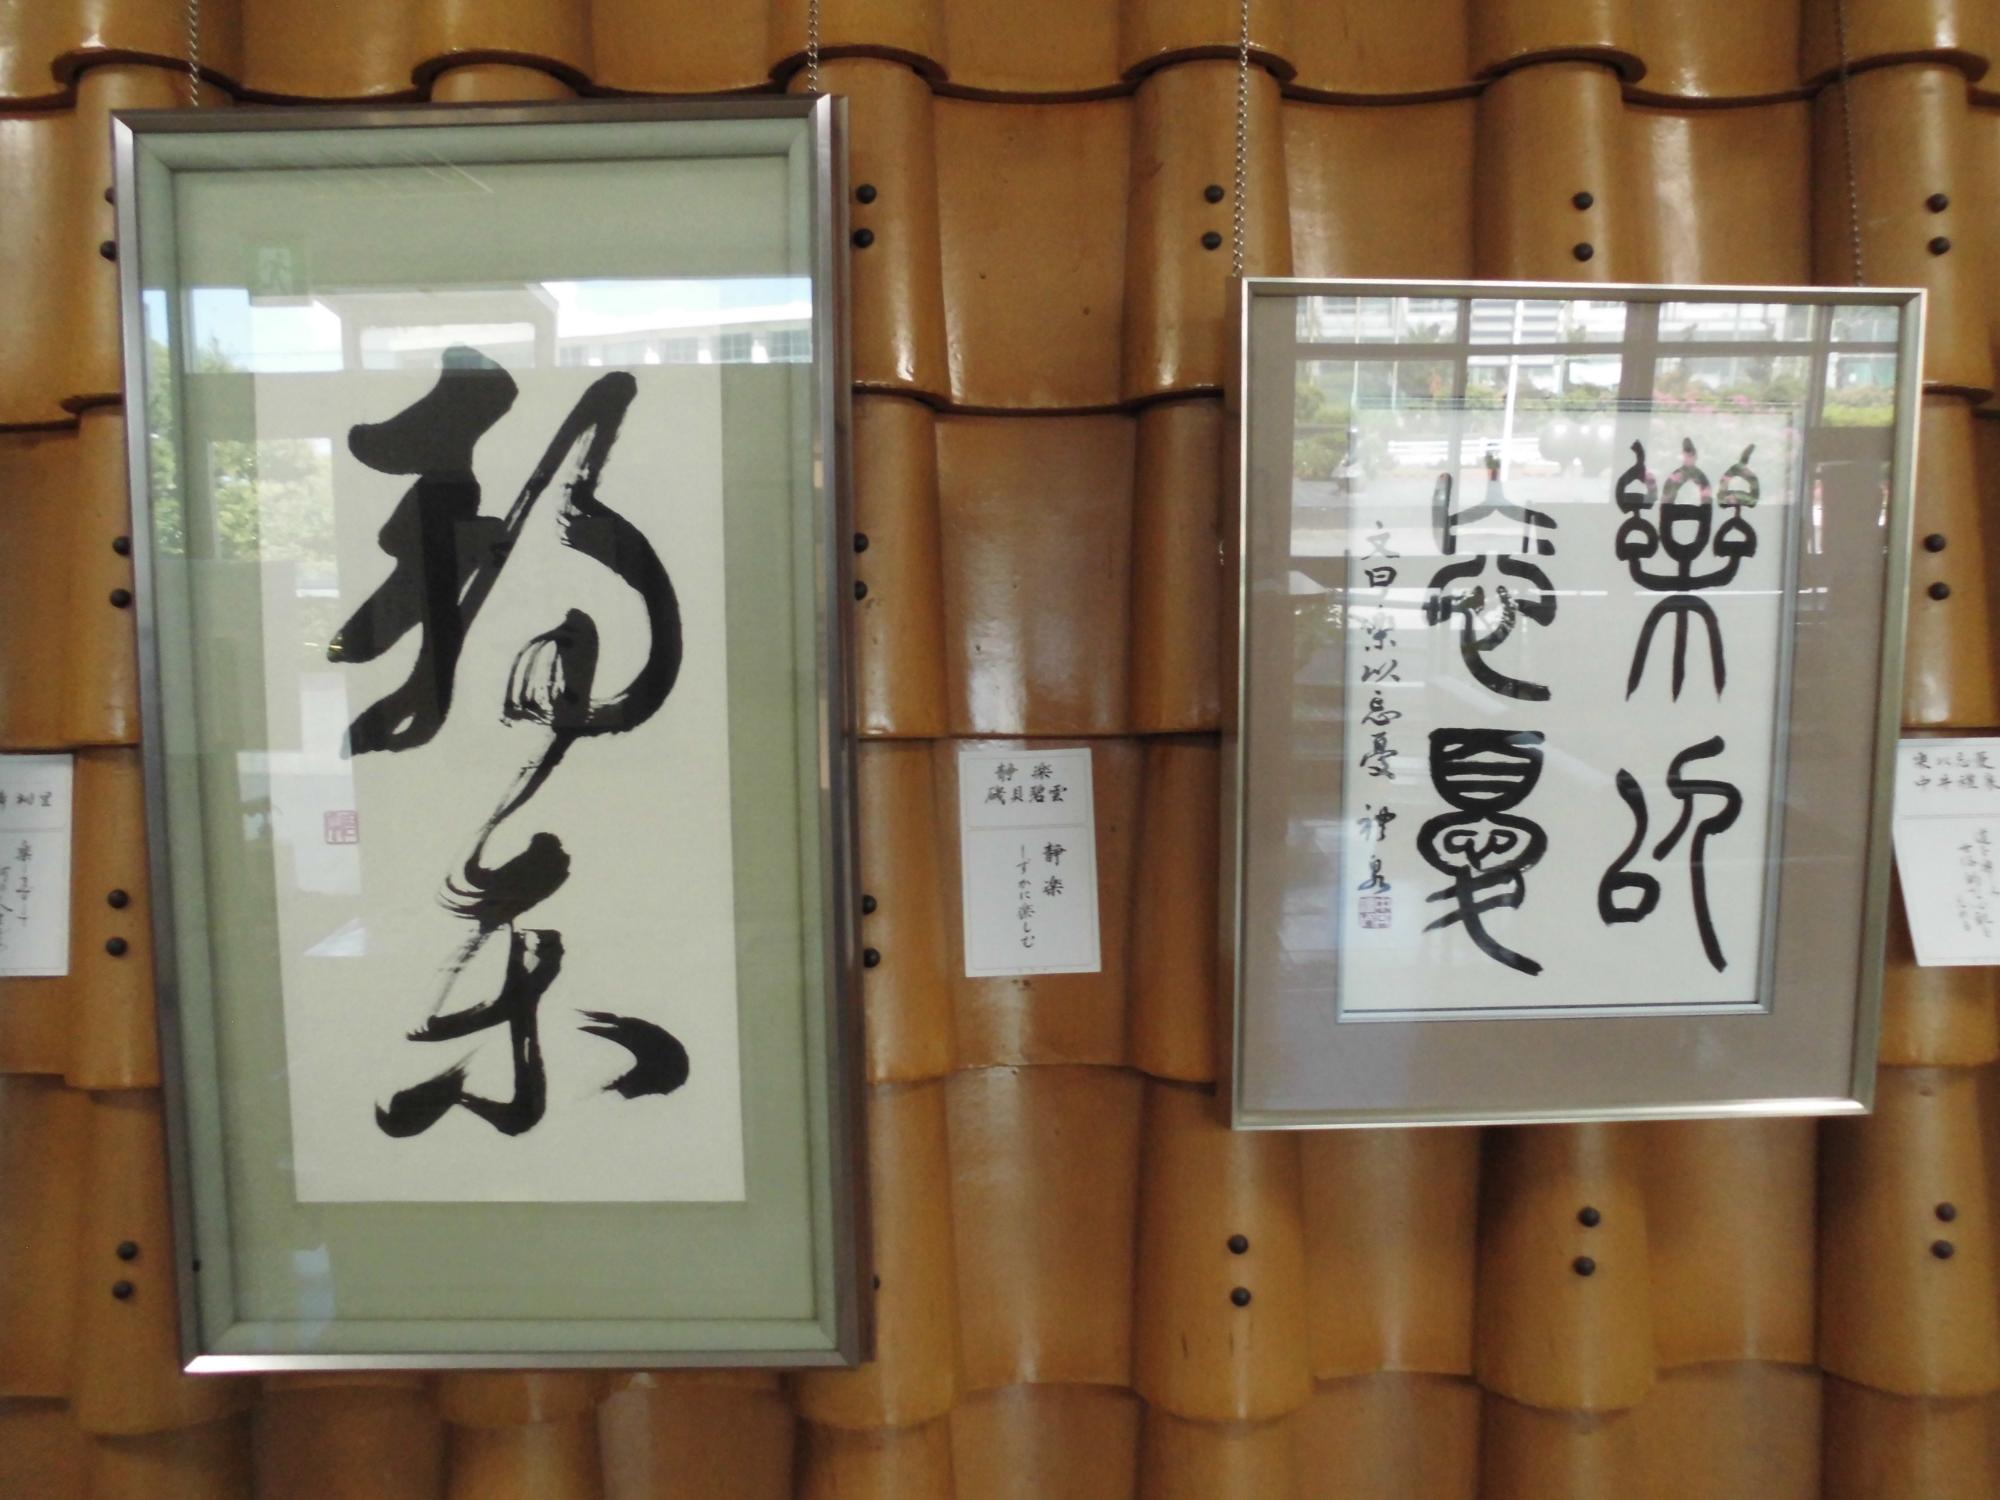 静楽
静楽
磯貝碧雲
静楽
しずかに楽しむ
樂以
忘憂
文曰楽以忘憂 禮泉
楽以忘憂